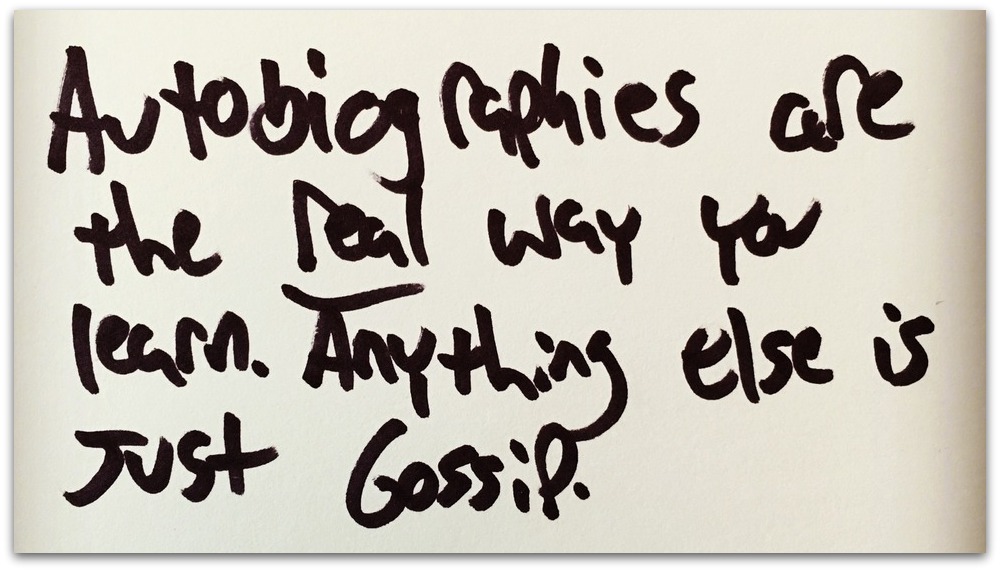 Autobiographies are
the real way you
learn. Anything else is
Just Gossip.